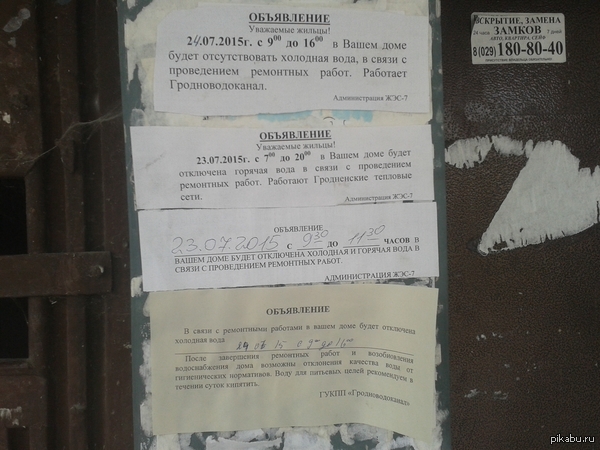 ОБЪЯВЛЕНИЕ
Уважаемые жильцы!
24.07.2015г. с 9⁰⁰ до 16⁰⁰ в Вашем доме
будет отсутствовать холодная вода, в связи с
проведением ремонтных работ. Работает
Гродноводоканал.
Администрация ЖЭС-7
ОБЪЯВЛЕНИЕ
Уважаемые жильцы!
23.07.2015г. с 7⁰⁰ до 20⁰⁰ в Вашем доме будет
отключена горячая вода в связи с проведением
ремонтных работ. Работают Гродненские тепловые
сети.
Администрация ЖЭС-7
ОБЪЯВЛЕНИЕ
23.07.2015 С 9³⁰ ДО 11³⁰ ЧАСОВ В
ВАШЕМ ДОМЕ БУДЕТ ОТКЛЮЧЕНА ХОЛОДНАЯ И ГОРЯЧАЯ ВОДА В
СВЯЗИ С ПРОВЕДЕНИЕМ РЕМОНТНЫХ РАБОТ.
АДМИНИСТРАЦИЯ ЖЭС-7
ОБЪЯВЛЕНИЕ
В связи с ремонтными работами в вашем доме будет отключена
холодная вода
После завершения ремонтных работ и возобновления
водоснабжения дома возможны отклонения качества воды от
гигиенических нормативов. Воду для питьевых целей рекомендуем в
течении суток кипятить.
ГУКПП «Гродноводоканал»
ВСКРЫТИЕ, ЗАМЕНА
24 часа ЗАМКОВ 7 дней
АВТО, КВАРТИРА, СЕЙФ
8 (029) 180-80-40
pikabu.ru